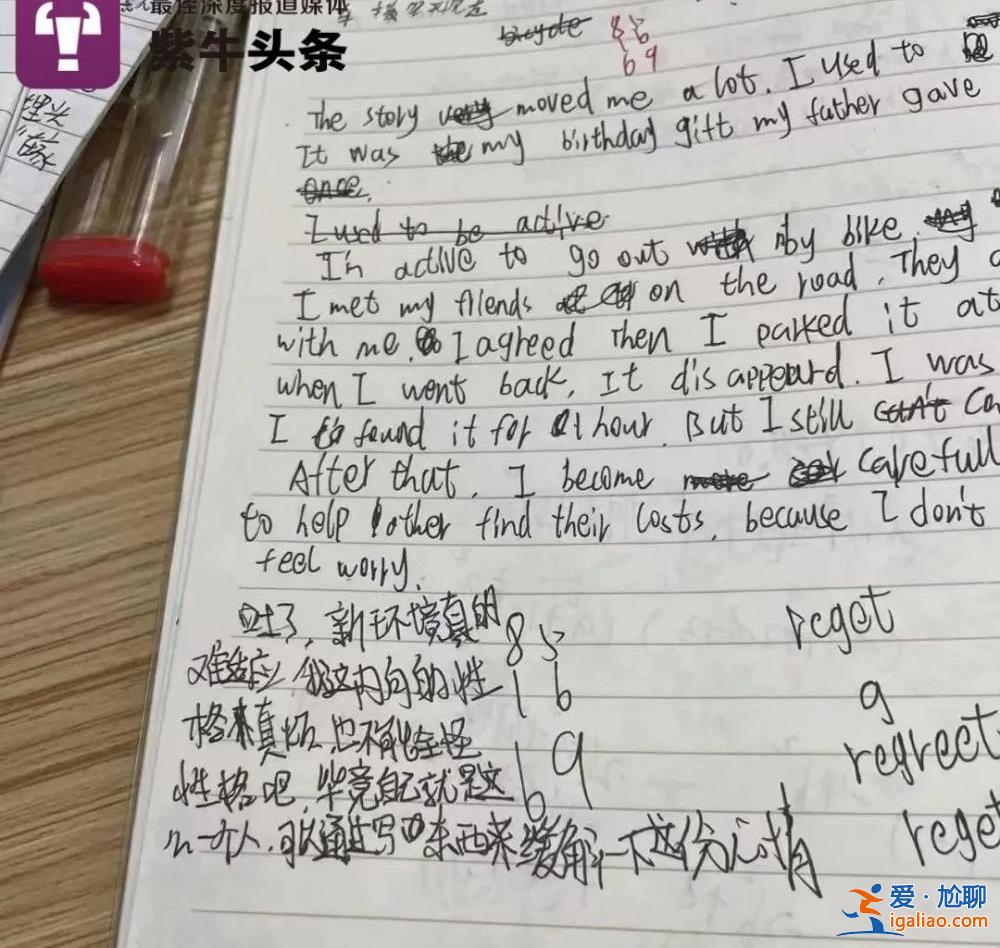 最佳深度报道媒体
紫牛头条
bicycle 86
69
埋头
The story very moved me a lot. I used to
It was the my birthday gift my father gave
once.
I used to be active.
I'm active to go out by bike.
I met my friends on the road. They
with me. I agreed Then I parked it at
when I went back, It disappeard. I was
I found it for 1 hour. But I still can't
After that, I become more carefull
to help other find their losts, because I don't
feel worry.
吐了，新环境真的
85
reget
难适应，我这内向的性
16
g
格真 也不能全怪
19
regrect
性格吧，毕竟自己就是这
6
么一个人，可以通过写 东西来缓解一下这份心情
reget
爱·尬聊
igaliao.com